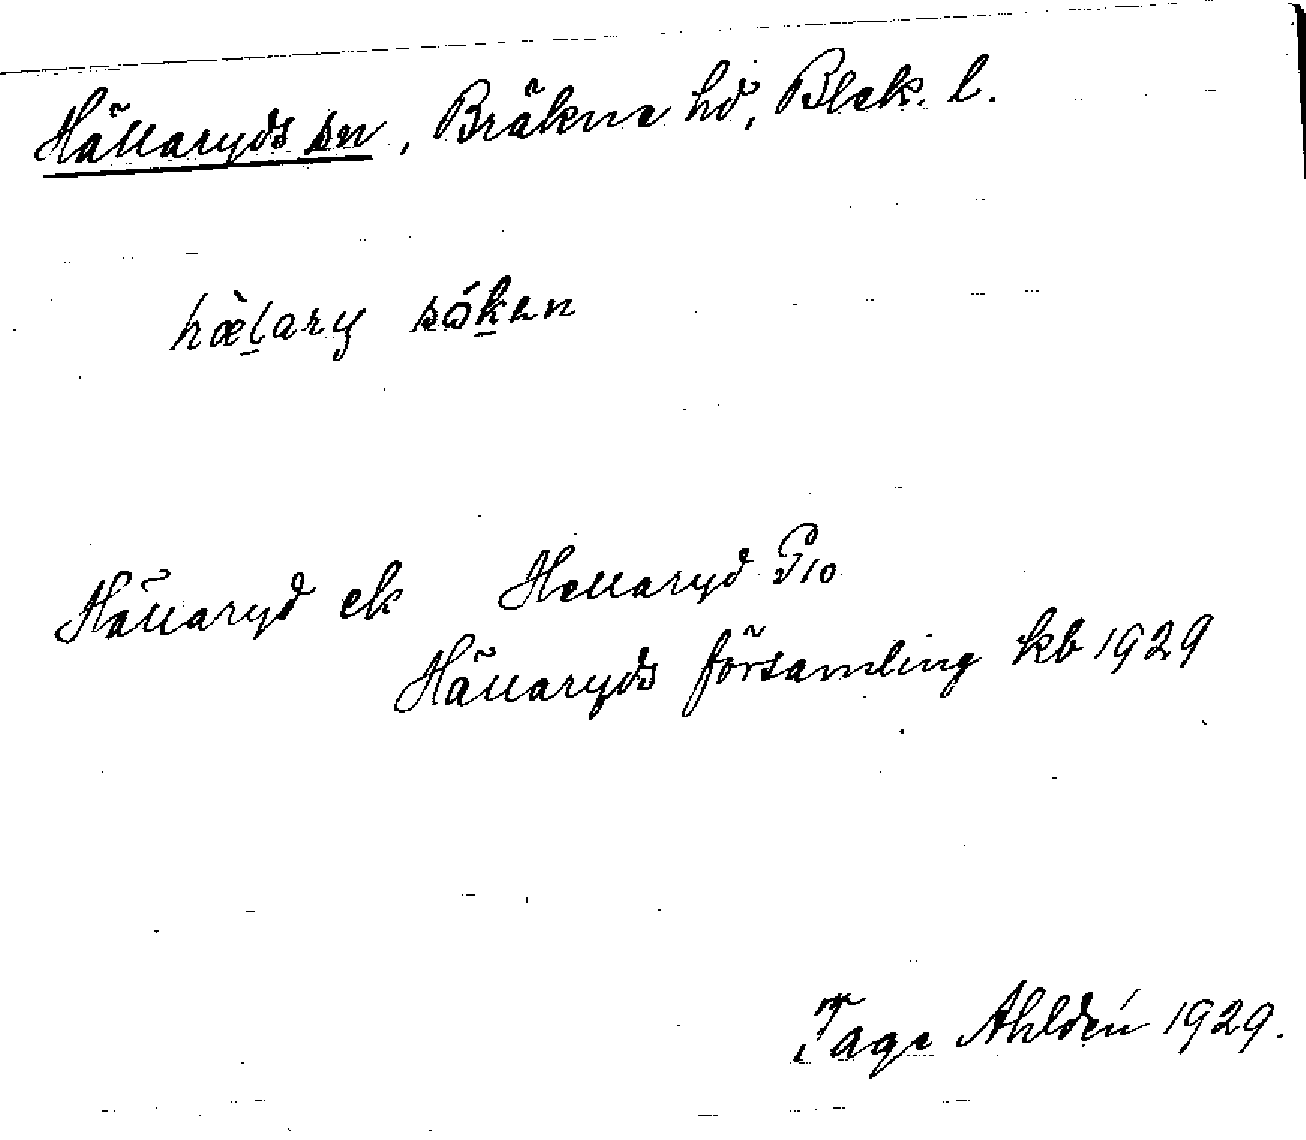 Hällaryds sn, Bräkne hd, Blek. l.
hæ̀l̠ary sók̠en
Hällaryd ek Hellaryd G10
Hällaryds församling kb 1929
Tage Ahldén 1929.